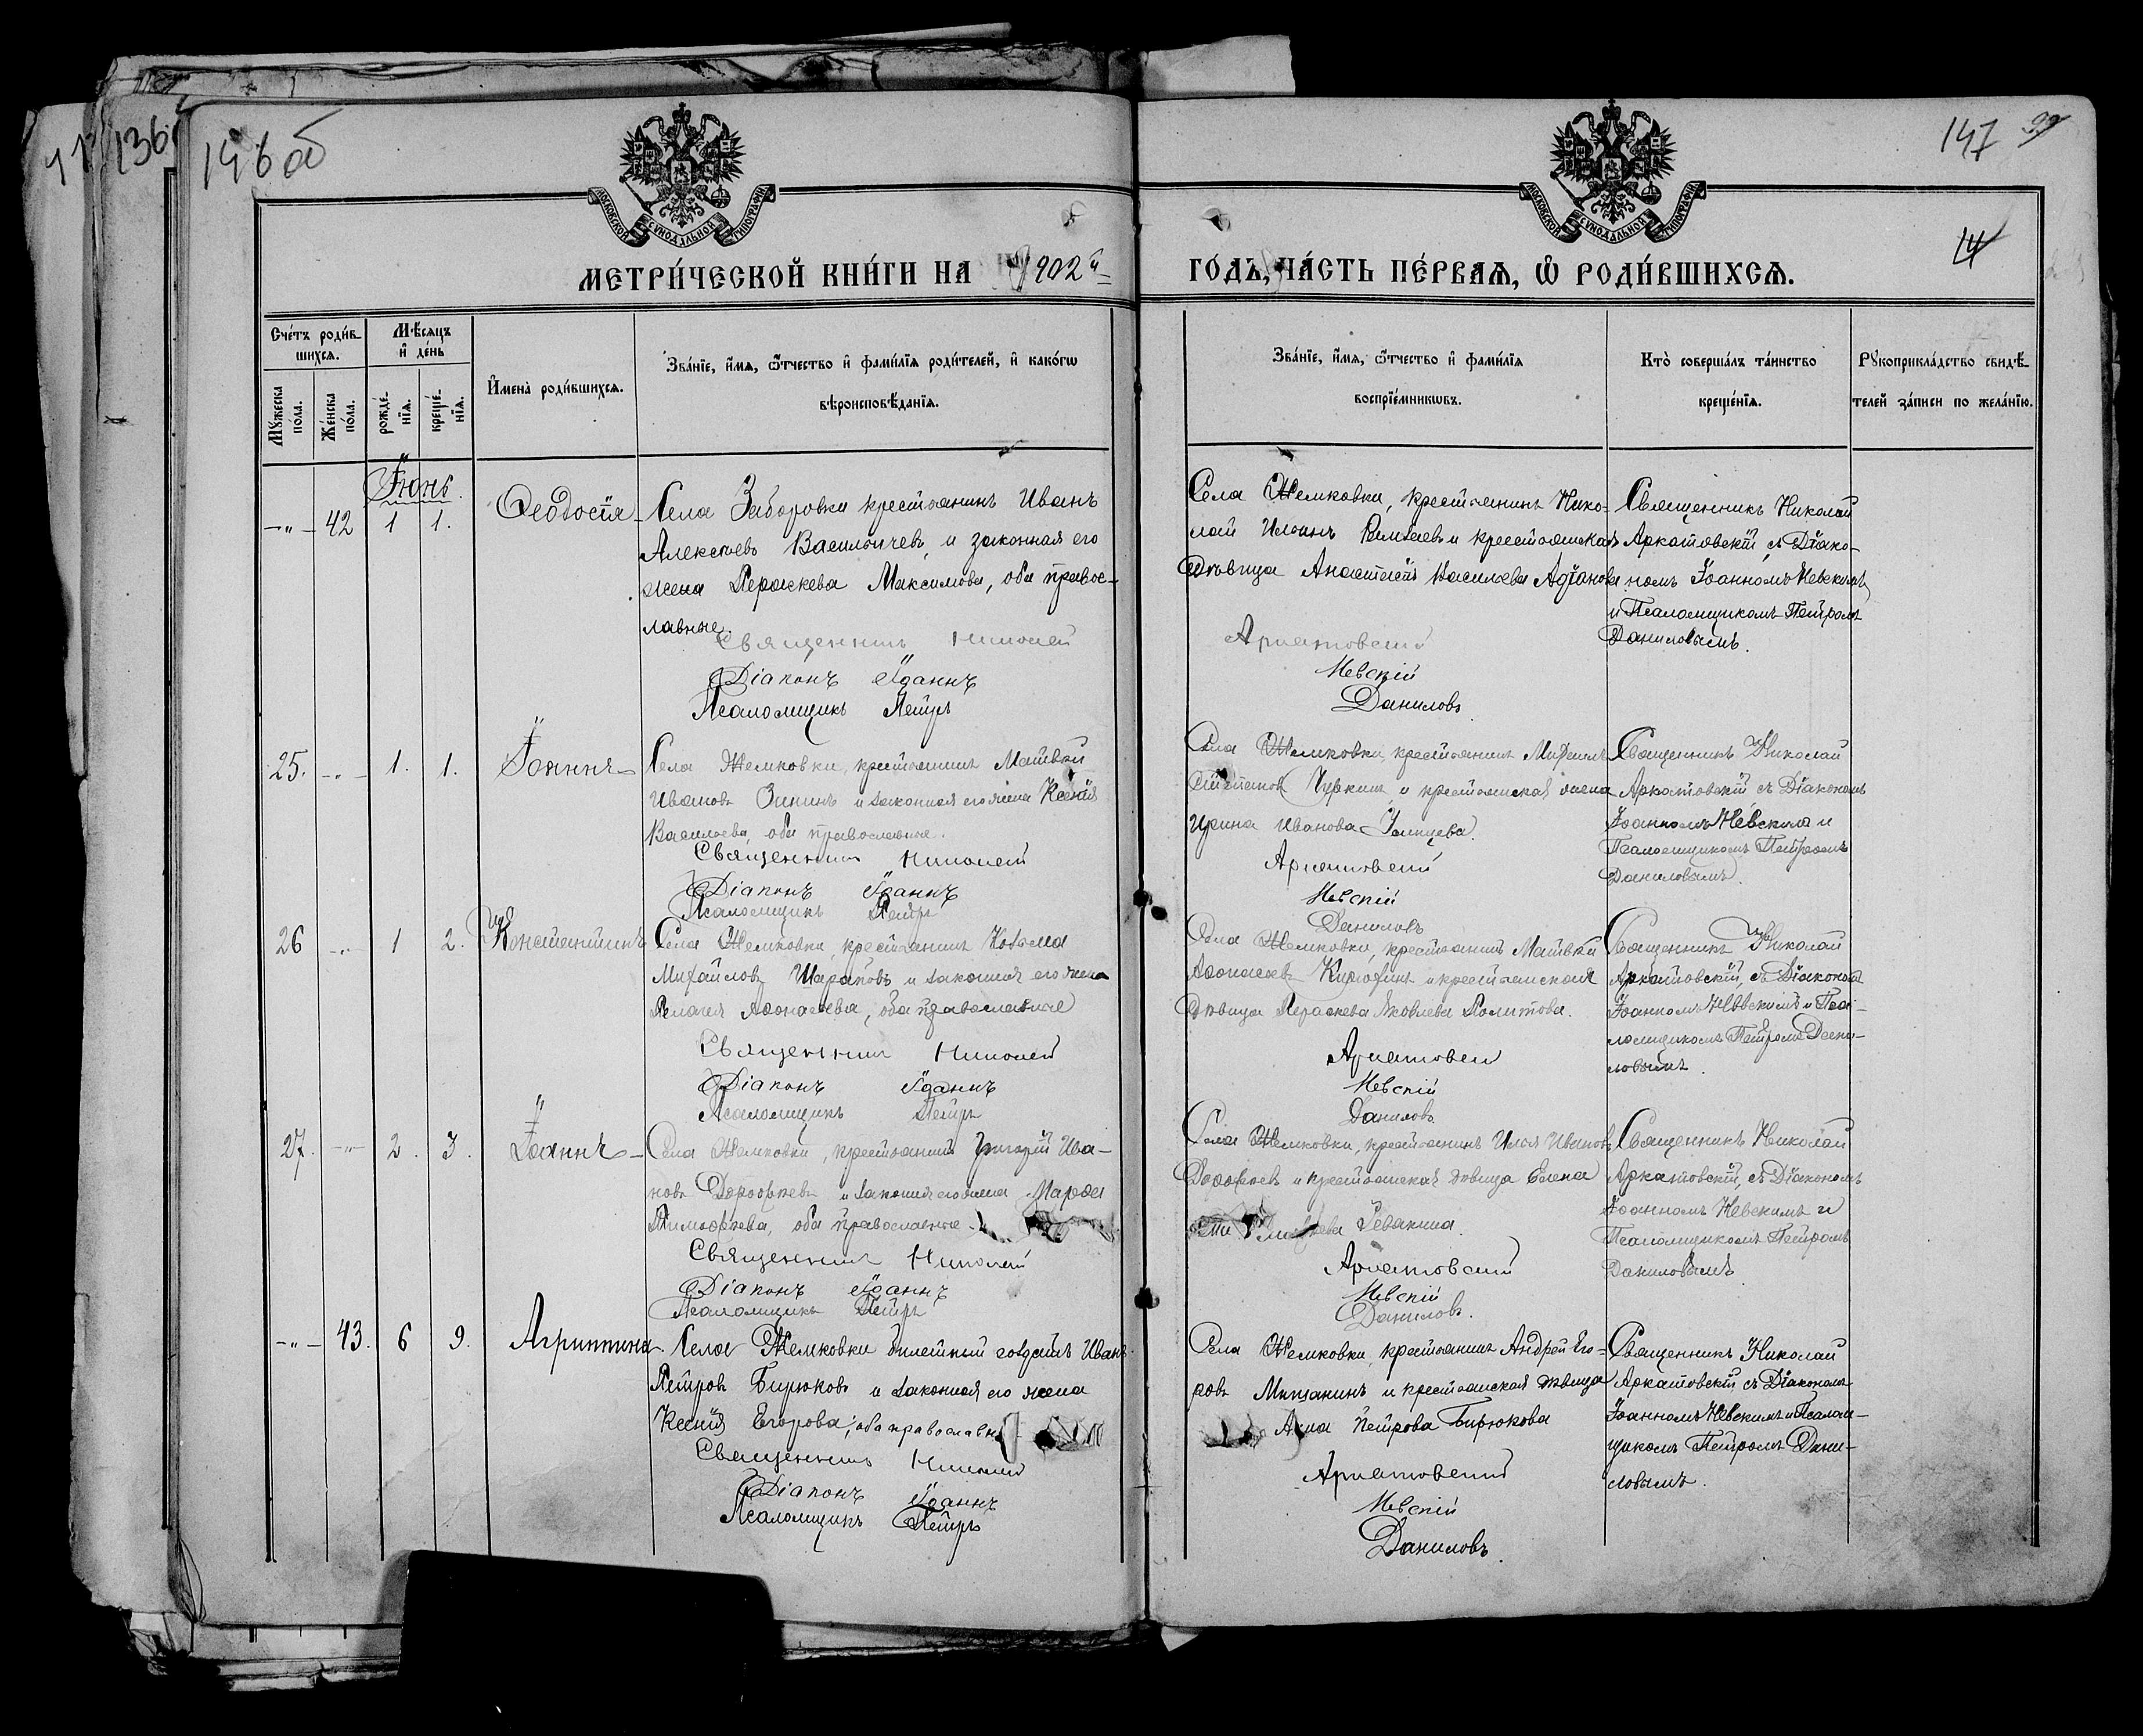 146 об
147
14
МОСКОВСКОЙ СУНОДАЛЬНОЙ ТИПОГРАФІИ
МОСКОВСКОЙ СУНОДАЛЬНОЙ ТИПОГРАФІИ
МЕТРИ́ЧЕСКОЙ КНИ́ГИ НА 1902й
ГО́ДЪ, ЧА́СТЬ ПЕ́РВАѦ, Ѡ҆ РОДИ́ВШИХСѦ.
Сче́тъ роди́в-
шихсѧ.
Мꙋ́жеска по́ла.
Же́нска по́ла.
Мѣ́сѧцъ
и҆ де́нь
рожде́-
нїѧ.
креще́-
нїѧ.
И҆мена̀ роди́вшихсѧ.
Зва́нїе, и҆́мѧ, ѻ҆́тчество и҆ фами́лїѧ роди́телей, и҆ како́гѡ
вѣроисповѣ́данїѧ.
Зва́нїе, и҆́мѧ, ѻ҆́тчество и҆ фами́лїѧ
воспрїе́мникѡвъ.
Кто̀ соверша́лъ та́инство
креще́нїѧ.
Рꙋкоприкла́дство свидѣ́-
телей за́писи по жела́нїю.
Іюнь.
-"- 42 1 1. Ѳеодосія
Села Заборовки крестьянинъ Иванъ
Алексѣевъ Васильичевъ, и законная его
жена Параскева Максимова, оба правос-
лавные.
Священникъ Николай
Діаконъ Іоаннъ
Псаломщикъ Петръ
Села Жемковки, крестьянинъ Нико-
лай Ильинъ и крестьянская
дѣвица Анастасія Васильева
Аркатовскій
Невскій
Даниловъ
Священникъ Николай
Аркатовскій, съ Діако-
номъ Іоанномъ Невскимъ
и Псаломщикомъ Петромъ
Даниловымъ.
25. -"- 1. 1. Іоаннъ
Села Жемковки, крестьянинъ Матвѣй
Ивановъ Зининъ и законная его жена Ксенія
Васильева, оба православные.
Священникъ Николай
Діаконъ Іоаннъ
Псаломщикъ Петръ
Села Жемковки, крестьянинъ
Степановъ Чуркинъ и крестьянская жена
Ирина Иванова
Аркатовскій
Невскій
Даниловъ
Священникъ Николай
Аркатовскій съ Діакономъ
Іоанномъ Невскимъ и
Псаломщикомъ Петромъ
Даниловымъ.
26 -"- 1 2. Константинъ
Села Жемковки, крестьянинъ Козьма
Михайловъ Шараповъ и законная его жена
Пелагея Аѳонасьева, оба православные
Священникъ Николай
Діаконъ Іоаннъ
Псаломщикъ Петръ
Села Жемковки, крестьянинъ Матвѣй
Аѳонасьевъ и крестьянская
дѣвица Параскева Яковлева
Аркатовскій
Невскій
Даниловъ
Священникъ Николай
Аркатовскій, съ Діакономъ
Іоанномъ Невскимъ и Пса-
ломщикомъ Петромъ Дани-
ловымъ.
27. -"- 2. 3. Іоаннъ
Села Жемковки, крестьянинъ Григорій Ива-
новъ Дорофѣевъ и законная его жена Марѳа
Тимофѣева, оба православные.
Священникъ Николай
Діаконъ Іоаннъ
Псаломщикъ Петръ
Села Жемковки, крестьянинъ Илья Ивановъ
Дорофѣевъ и крестьянская дѣвица Елена
Ревакина.
Аркатовскій
Невскій
Даниловъ.
Священникъ Николай
Аркатовскій, съ Діакономъ
Іоанномъ Невскимъ и
Псаломщикомъ Петромъ
Даниловымъ
-"- 43. 6 9. Агриппина
Села Жемковки билетный солдатъ Иванъ
Петровъ Бирюковъ и законная его жена
Ксенія Егорова, оба православн
Священникъ Николай
Діаконъ Іоаннъ
Псаломщикъ Петръ
Села Жемковки, крестьянинъ Андрей Его-
ровъ Мѣщанинъ и крестьянская дѣвица
Анна Петрова Бирюкова
Аркатовскій
Невскій
Даниловъ.
Священникъ Николай
Аркатовскій съ Діакономъ
Іоанномъ Невскимъ и Псалом-
щикомъ Петромъ Дани-
ловымъ.